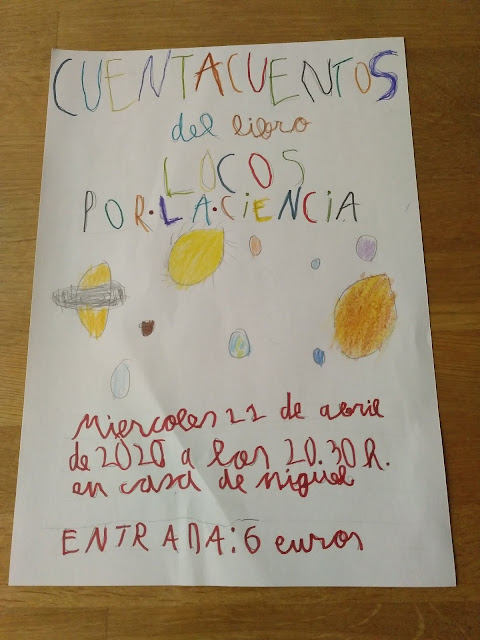 CUENTACUENTOS
del libro
LOCOS
POR·LA·CIENCIA
Miercoles 22 de abril
de 2020 a las 20.30 h.
en casa de Miguel
ENTRADA: 6 euros